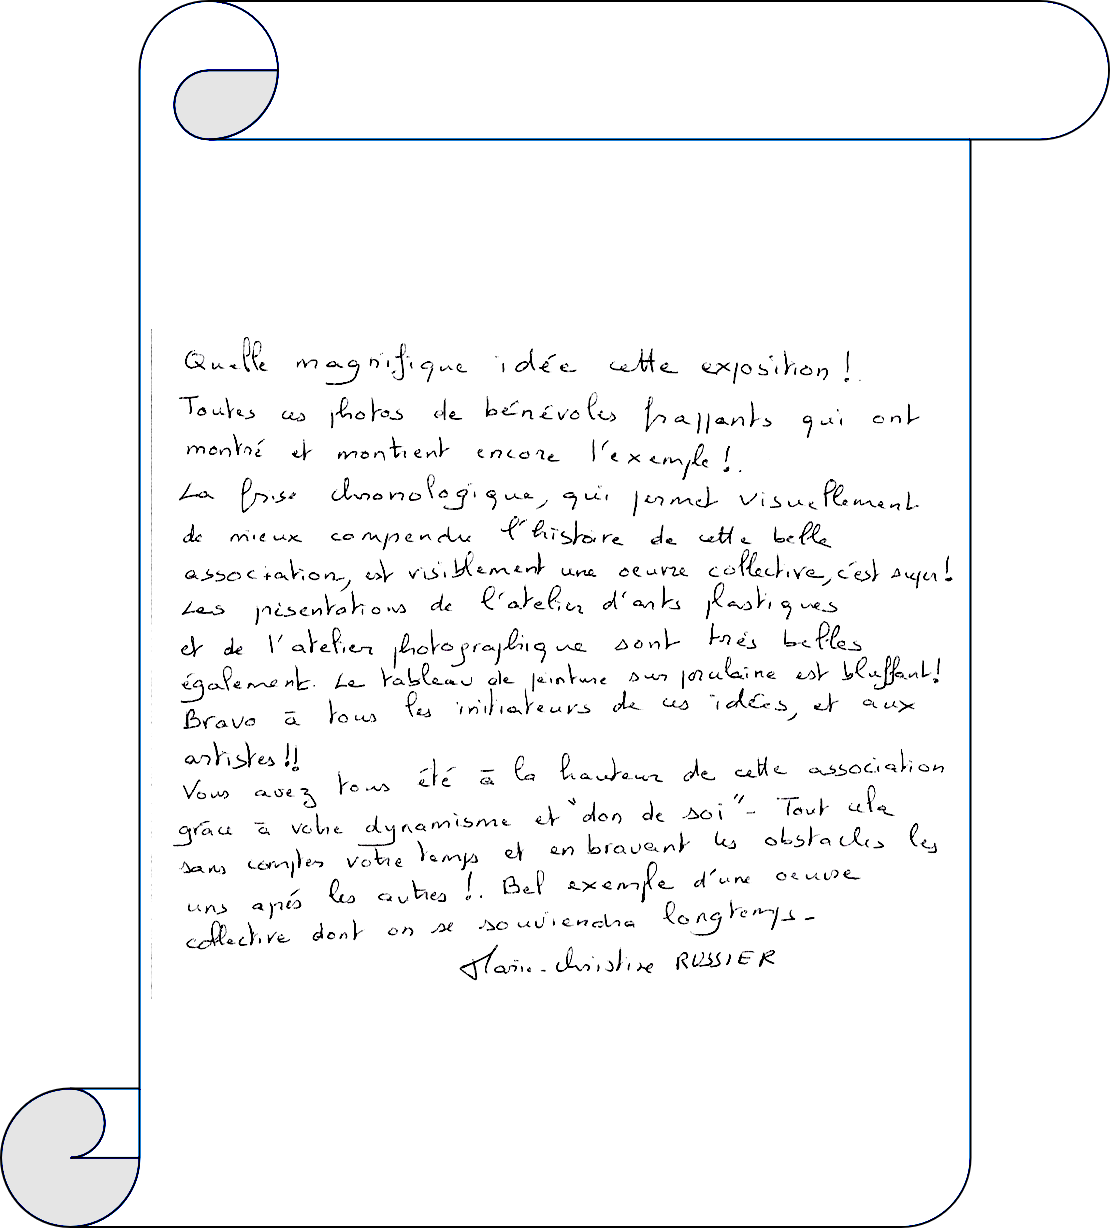 Quelle magnifique idée cette exposition !
Toutes ces photos de bénévoles frappants qui ont
montré et montrent encore l'exemple !.
La frise chronologique, qui permet visuellement
de mieux comprendre l'histoire de cette belle
association, est visiblement une oeuvre collective, c'est super !
Les présentations de l'atelier d'arts plastiques
et de l'atelier photographique sont très belles
également. Le tableau de peinture sur porcelaine est bluffant !
Bravo à tous les initiateurs de ces idées, et aux
artistes !!
Vous avez tous été à la hauteur de cette association
grâce à votre dynamisme et "don de soi" - Tout cela
sans compter votre temps et en bravant les obstacles les
uns après les autres !. Bel exemple d'une oeuvre
collective dont on se souviendra longtemps -
Marie-Christine RUSSIER